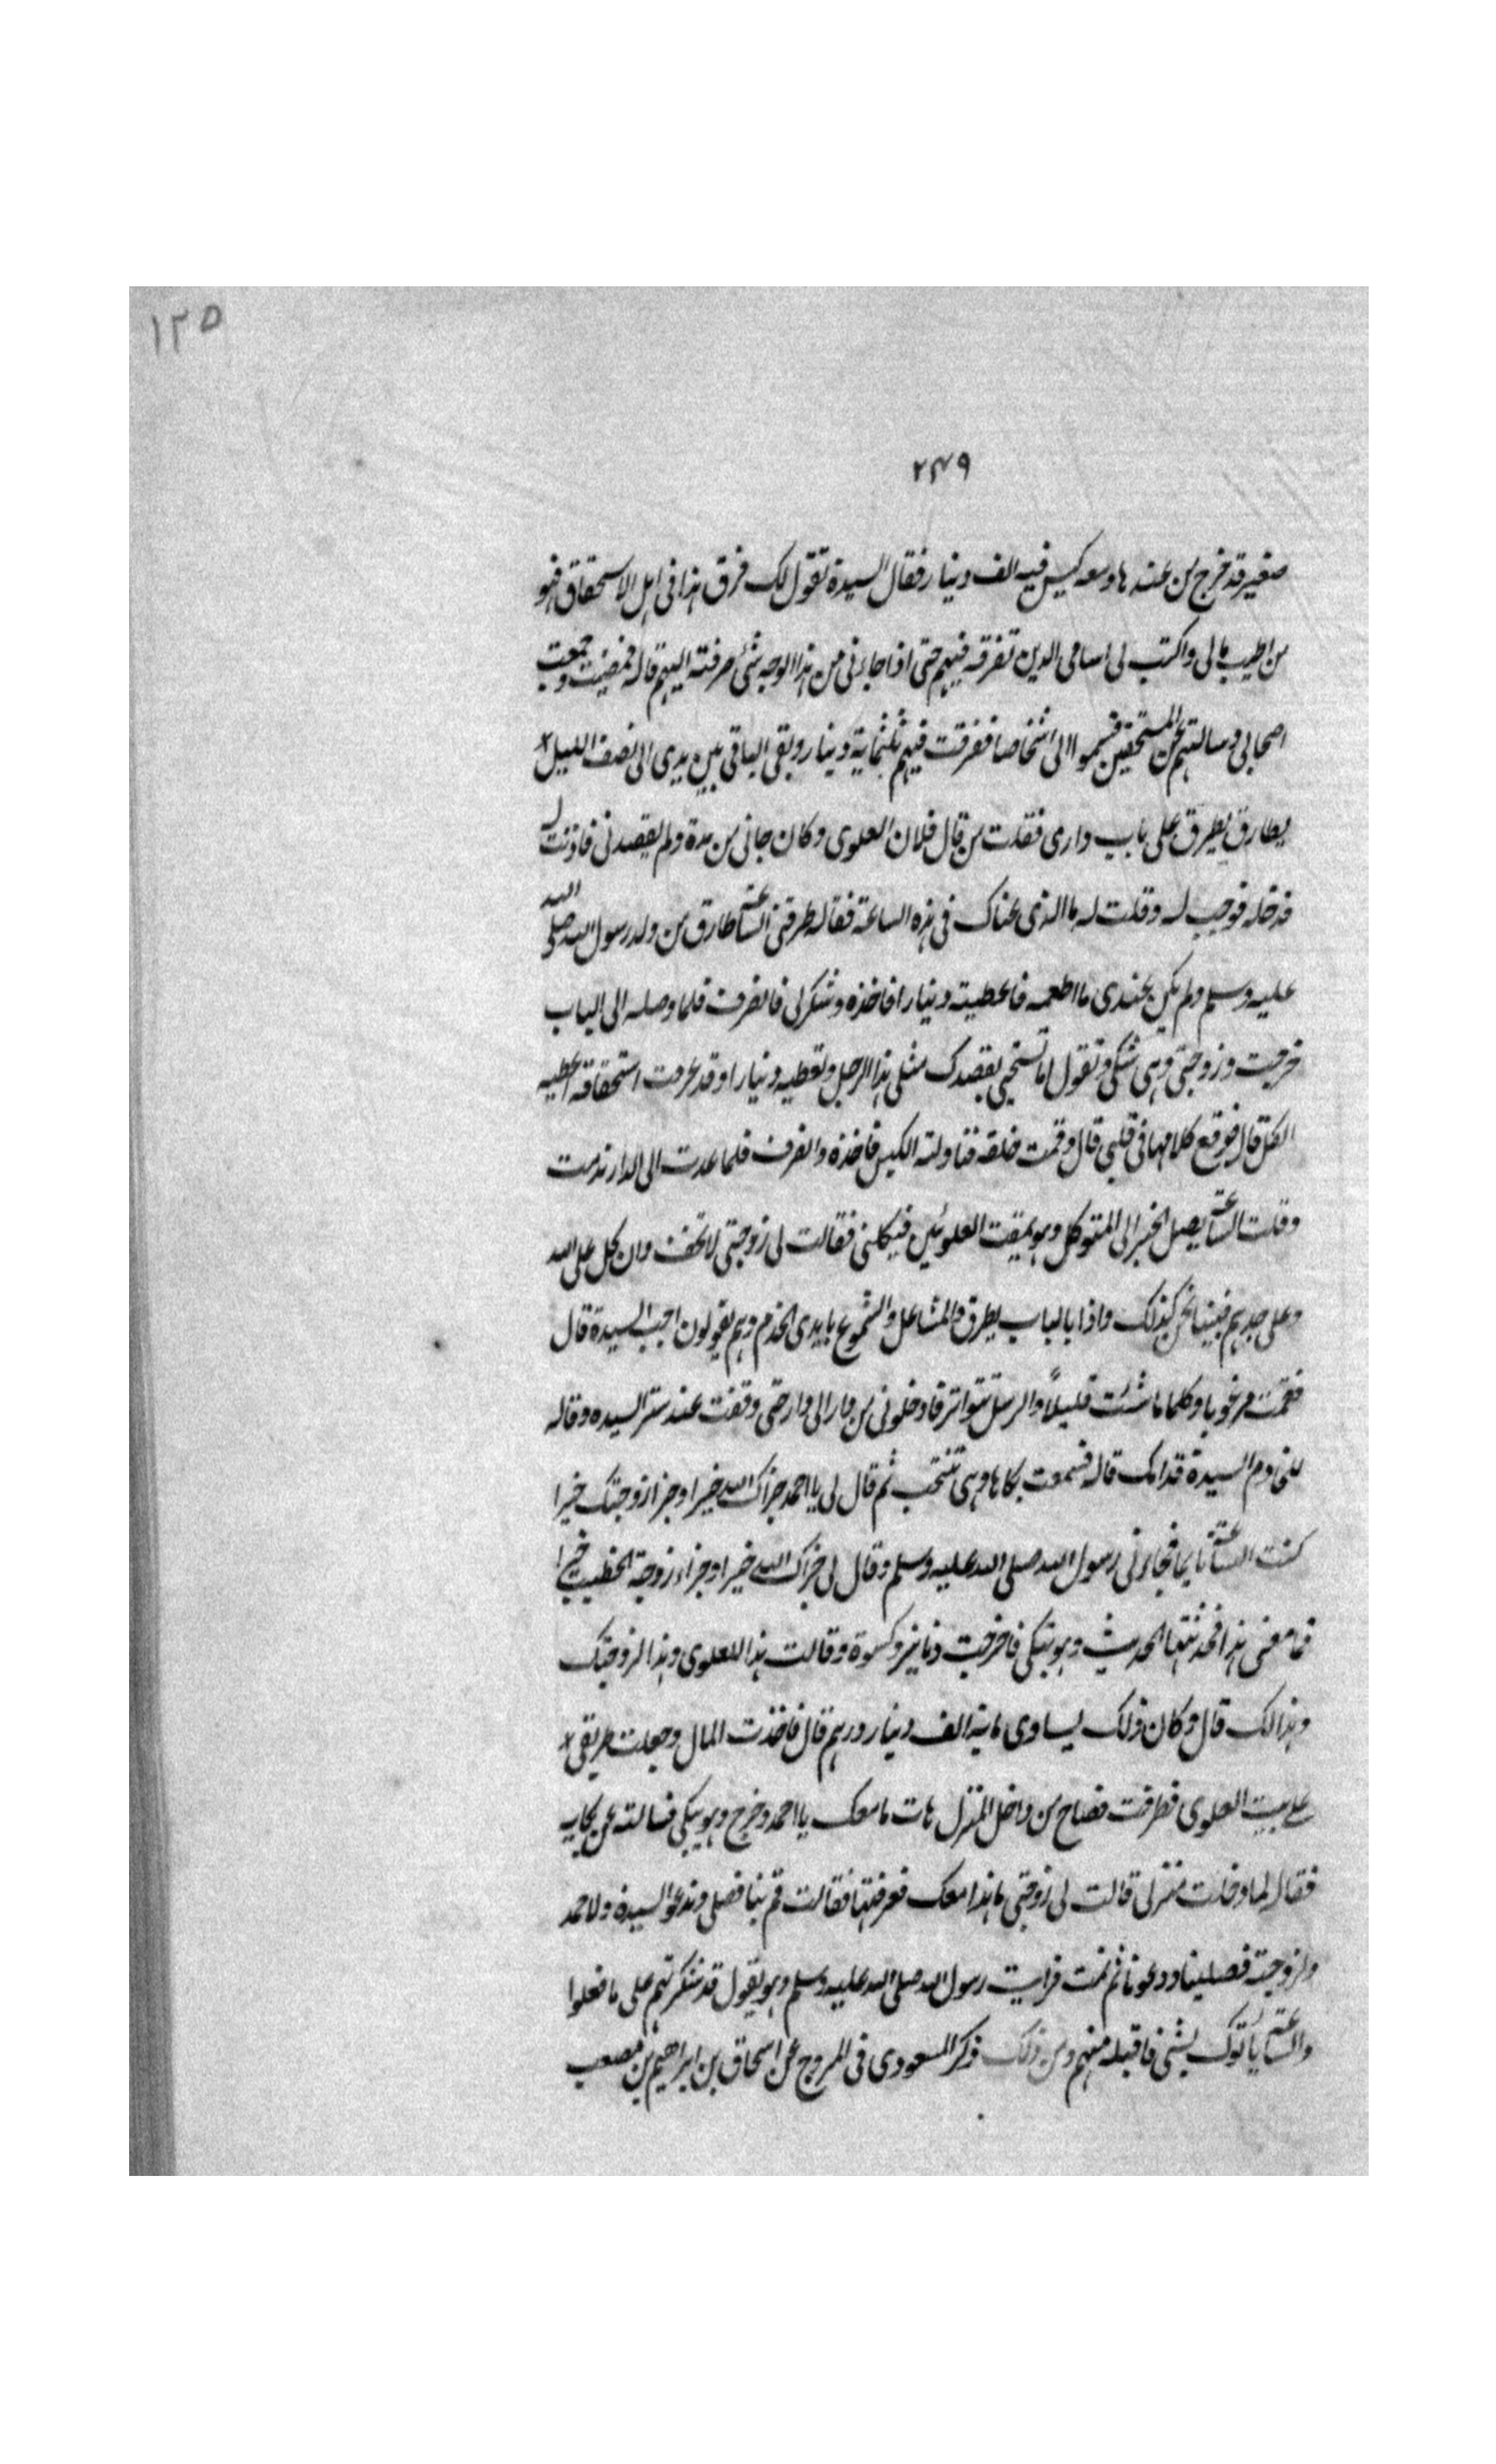 ١٢٥
٢٤٩
صغير قد خرج من عندها ومعه كيس فيه الف دينار فقال السيدة تقول لك فرق هذا فى اهل الاستحقاق فهو
من اطيب مالى واكتب لى اسامى الذين تفرقه فيهم حتى اذا جاءنى من هذا الوجه شئ صرفته اليهم قال فمضيت وجمعت
اصحابى وسالتهم عن المستحقين فسموا الى اشخاصا ففرقت فيهم ثلثماية دينار وبقى الباقى بين يدى الى نصف الليل
بطارق يطرق على باب دارى فقلت من قال فلان العلوى وكان جانى من مدة ولم يقصدنى فاذنت له
فدخل فرحب له وقلت له ما الذى عناك فى هذه الساعة فقال طرقنى الساعة طارق من ولد رسول الله صلى الله
عليه وسلم ولم يكن عندى ما اطعمه فاعطيته دينارا فاخذه وشكر لى فانصرف فلما وصل الى الباب
خرجت وزوجتى وهى تبكى وتقول اما تستحى يقصدك مثل هذا الرجل وتعطيه دينارا وقد عرفت استحقاقه اعطيه
الكل قال فوقع كلامها فى قلبى قال وقمت خلفه فناولته الكيس فاخذه وانصرف فلما عدت الى الدار ندمت
وقلت الساعة يصل الخبر الى المتوكل وهو يمقت العلويين فيكلنى فقالت لى زوجتى لا تخف وان كل على الله
وعلى جدهم فبينا نحن كذلك واذا بالباب يطرق والمشاعل والشموع بايدى الخدم وهم يقولون اجب السيدة قال
فقمت مرعوبا وكلما ماشئت قليلاً والرسل تتواتر فادخلونى من دار الى دار حتى وقفت عند ستر السيده وقال
لى خادم السيدة قدامك قال فسمعت بكاها وهى تنتحب ثم قال لى يا احمد جزاك الله خيرا وجزا زوجتك خيرا
كنت الساعة نايما فجاءنى رسول الله صلى الله عليه وسلم وقال لى جزاك الله خيرا وجزاء زوجة الخطيب خيرا
فما معنى هذا فحدثتها الحديث وهو تبكى فاخرجت دنانير وكسوة وقالت هذا للعلوى وهذا لزوجتك
وهذا لك قال وكان ذلك يساوى ماية الف دينار ودرهم قال فاخذت المال وجعلت طريقى
على بيت العلوى فطرقت فصاح من داخل المنزل هات ما معك يا احمد وخرج وهو يبكى فسالته عن بكايه
فقال لما دخلت منزلى قالت لى زوجتى ما هذا معك فعرفتها فقالت قم بنا فصلى وندعو السيدة ولاحمد
ولزوجته فصلينا ودعونا ثم نمت فرايت رسول الله صلى الله عليه وسلم وهو يقول قد شكرتهم على ما فعلوا
والساعة ياتوك بشئ فاقبله منهم ومن ذلك ذكر المسعودى فى المروج عن اسحاق بن ابراهيم بن مصعب